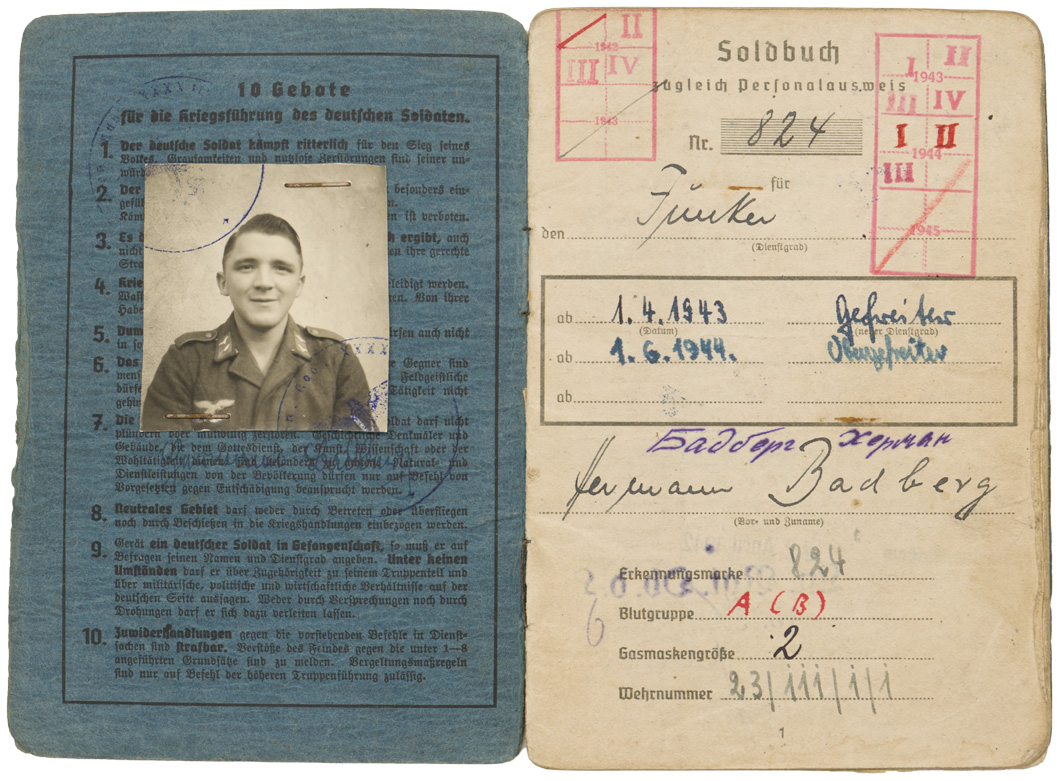 10 Gebote
für die Kriegsführung des deutschen Soldaten.
1. Der deutsche Soldat kämpft ritterlich für den Sieg seines
Volkes. Grausamkeiten und nutzlose Zerstörungen sind seiner un-
2. Der besonders ein-
n ist verboten.
3. Es ergibt, auch
nicht en ihre gerechte
Stra
4. Krie leidigt werden.
Waf en. Von ihrer
Habe
5. Dum rfen auch nicht
in
6. Das Gegner sind
Feldgeistliche
Tätigkeit nicht
7. Die ldat darf nicht
plündern oder mutwillig zerstören. Geschichtliche Denkmäler und
Gebäude, die dem Gottesdienst, der Kunst, Wissenschaft oder der
Wohltätigkeit dienen, sind besonders zu achten. Natural- und
Dienstleistungen von der Bevölkerung dürfen nur auf Befehl von
Vorgesetzten gegen Entschädigung beansprucht werden.
8. Neutrales Gebiet darf weder durch Betreten oder Überfliegen
noch durch Beschießen in die Kriegshandlungen einbezogen werden.
9. Gerät ein deutscher Soldat in Gefangenschaft, so muß er auf
Befragen seinen Namen und Dienstgrad angeben. Unter keinen
Umständen darf er über Zugehörigkeit zu seinem Truppenteil und
über militärische, politische und wirtschaftliche Verhältnisse auf der
deutschen Seite aussagen. Weder durch Versprechungen noch durch
Drohungen darf er sich dazu verleiten lassen.
10. Zuwiderhandlungen gegen die vorstehenden Befehle in Dienst-
sachen sind strafbar. Verstöße des Feindes gegen die unter 1—8
angeführten Grundsätze sind zu melden. Vergeltungsmaßregeln
sind nur auf Befehl der höheren Truppenführung zulässig.
II
1942
III IV
1943
I II
1943
III IV
I II
1944
III
1945
Soldbuch
zugleich Personalausweis
Nr. 824
für
den Funker
(Dienstgrad)
ab 1.4.1943 Gefreiter
(Datum) (neuer Dienstgrad)
ab 1.6.1944. Obergefreiter
ab
Бадберг Херман
Hermann Badberg
(Vor- und Zuname)
Erkennungsmarke 824
Blutgruppe A (B)
Gasmaskengröße 2
Wehrnummer 23/iii/i/i
1